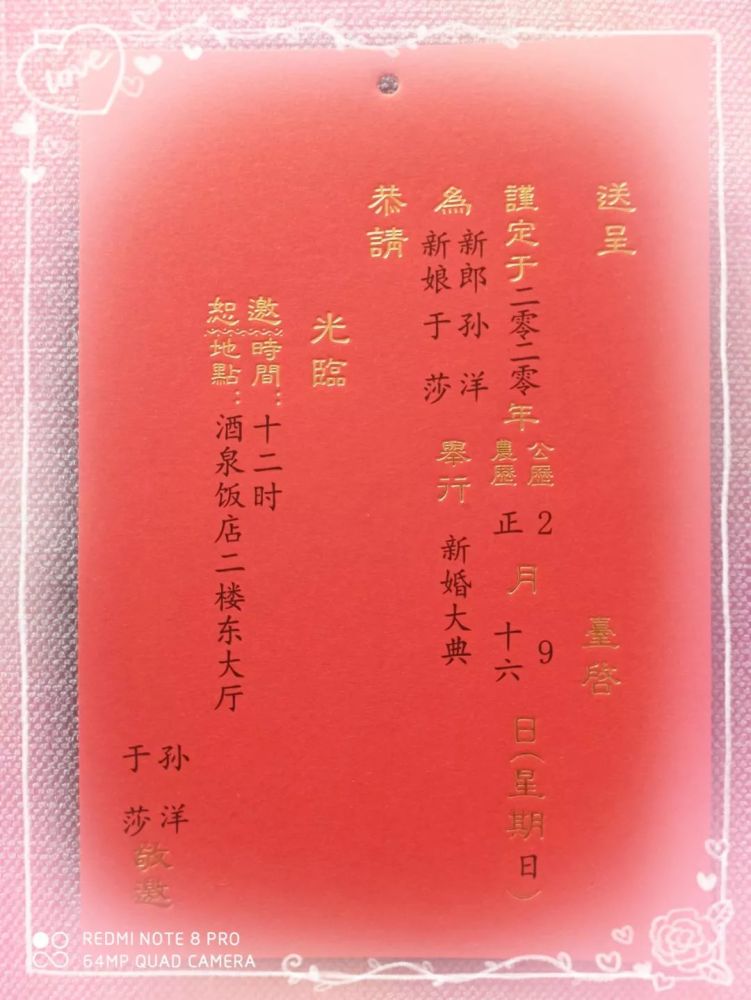 送呈
臺啓
謹定于二零二零年公歷2月9日(星期日)
農歷正月十六
為新郎孙洋
新娘于莎
舉行新婚大典
恭請
光臨
邀時間：十二时
恕地點：酒泉饭店二楼东大厅
孙洋
于莎
敬邀
love
REDMI NOTE 8 PRO
64MP QUAD CAMERA